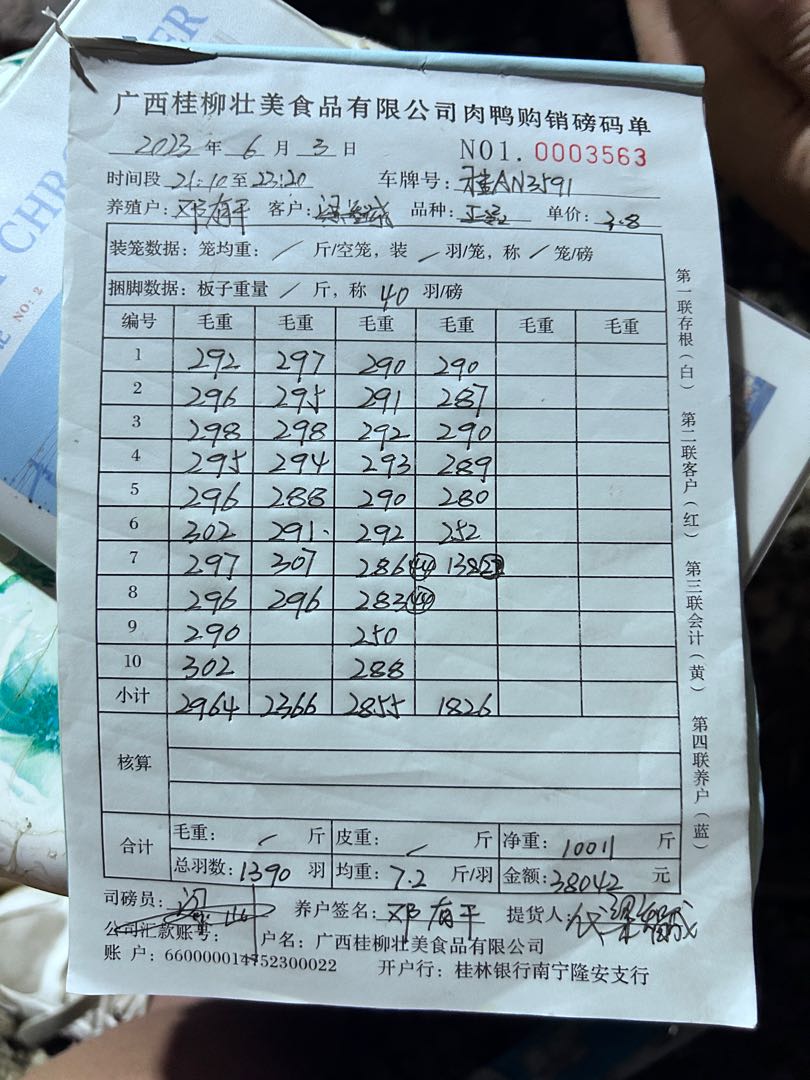 CHRO
NO: 2
ER
广西桂柳壮美食品有限公司肉鸭购销磅码单
2023 年 6 月 3 日 NO1. 0003563
时间段 21:10 至 23:20 车牌号: 桂AN3591
养殖户: 邓有平 客户: 品种: 单价: 3.8
装笼数据: 笼均重: / 斤/空笼, 装 / 羽/笼, 称 / 笼/磅
捆脚数据: 板子重量 / 斤, 称 40 羽/磅
编号 毛重 毛重 毛重 毛重 毛重 毛重
1 292 297 290 290
2 296 295 291 287
3 298 298 292 290
4 295 294 293 289
5 296 288 290 280
6 302 291. 292 252
7 297 307 286 44 138
8 296 296 283
9 290 250
10 302 288
小计 2964 2366 2855 1826
核算
合计 毛重: / 斤 皮重: / 斤 净重: 10011 斤
总羽数: 1390 羽 均重: 7.2 斤/羽 金额: 38042 元
司磅员: 养户签名: 邓有平 提货人:
公司汇款账号: 户名: 广西桂柳壮美食品有限公司
账 户: 660000014752300022 开户行: 桂林银行南宁隆安支行
第一联存根(白) 第二联客户(红) 第三联会计(黄) 第四联养户(蓝)